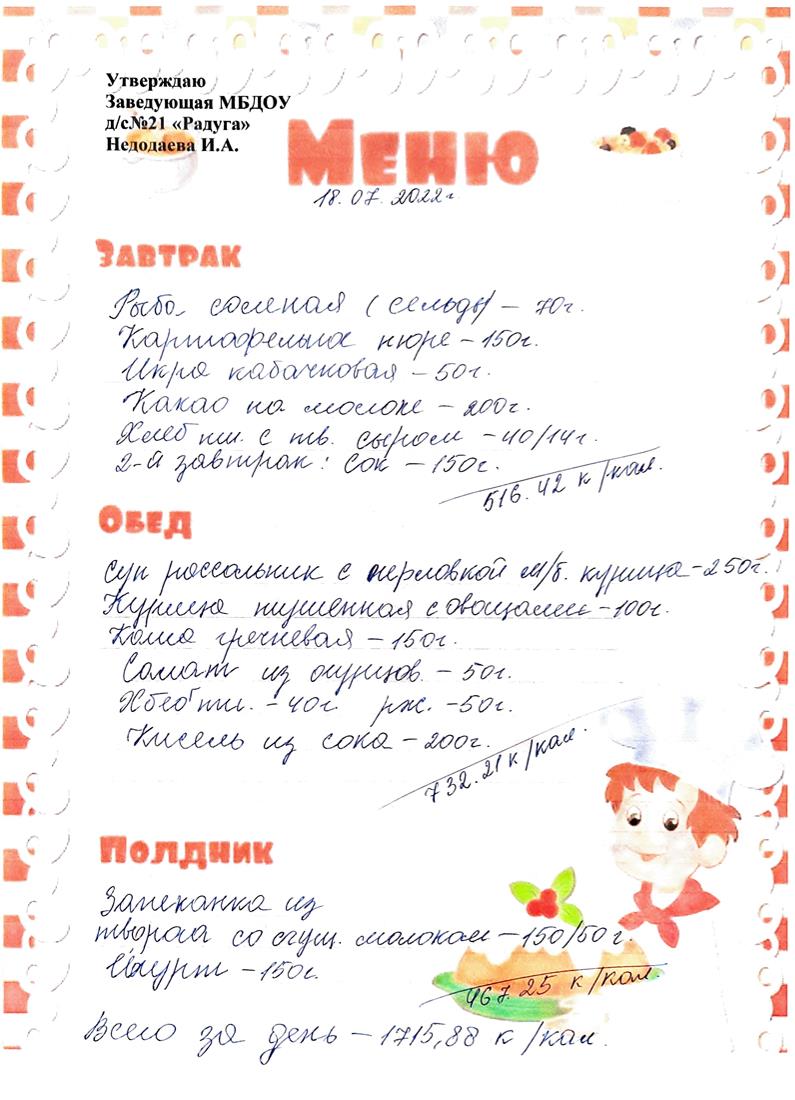 Утверждаю
Заведующая МБДОУ
д/с№21 «Радуга»
Недодаева И.А.
Меню
18.07.2022г
Завтрак
Рыба соленая (сельдь) – 70г.
Картофельное пюре – 150г.
Икра кабачковая – 50г.
Какао на молоке – 200г.
Хлеб пш. с тв. сыром – 40/14г.
2-й завтрак: Сок – 150г.
516.42 к/кал.
Обед
Суп рассольник с перловкой м/б. курица – 250г.
Курица тушенная с овощами – 100г.
Каша гречневая – 150г.
Салат из огурцов. – 50г.
Хлеб пш. – 40г рж. – 50г.
Кисель из сока – 200г.
732.21 к/кал.
Полдник
Запеканка из
творога со сгущ. молоком – 150/50г.
Йогурт – 150г.
467.25 к/кал.
Всего за день – 1715,88 к/кал.